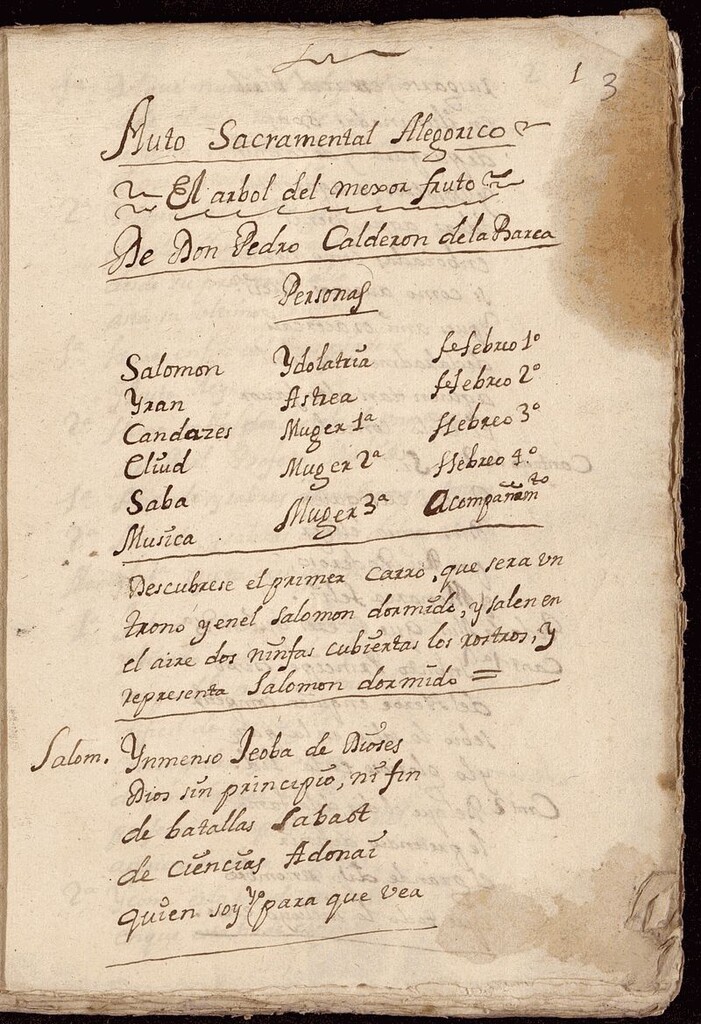 1 3
Auto Sacramental Alegorico
El arbol del mexor fruto
De Don Pedro Calderon dela Barca
Personas
Salomon Ydolatria Hebreo 1º
Yran Astrea Hebreo 2º
Candazes Muger 1ª Hebreo 3º
Eliud Muger 2ª Hebreo 4º
Saba Muger 3ª Acompañamto
Musica
Descubrese el primer carro, que sera vn
trono y enel Salomon dormido, y salen en
el aire dos ninfas cubiertas los rostros, y
representa Salomon dormido =
Salom. Ynmenso Jeoba de Dioses
Dios sin principio, ni fin
de batallas Sabaot
de ciencias Adonai
quien soy yo para que vea